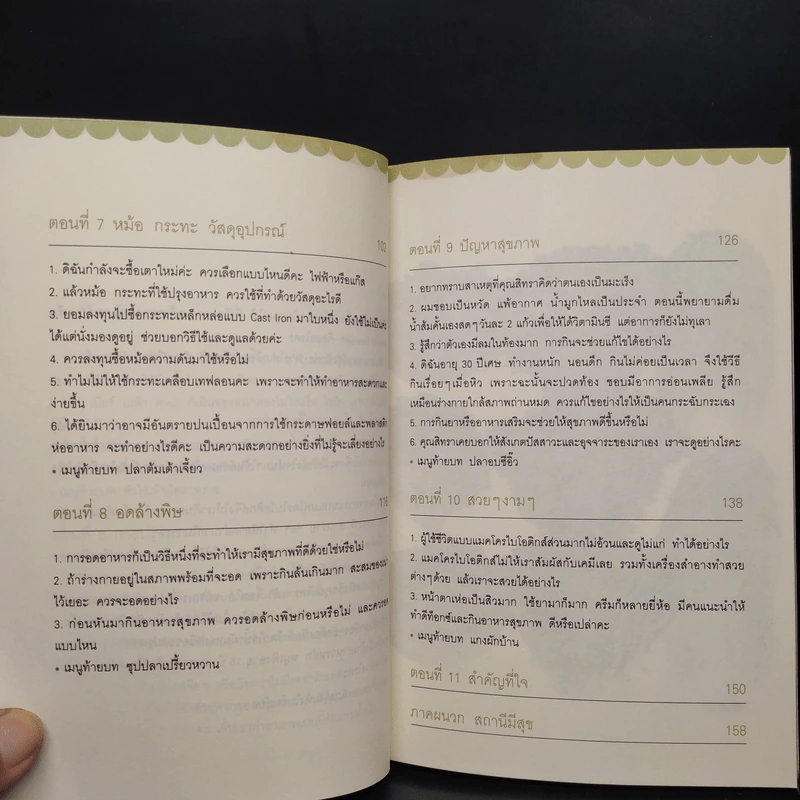 ตอนที่ 7 หม้อ กระทะ วัสดุอุปกรณ์
102
1. ดิฉันกำลังจะซื้อเตาใหม่ค่ะ ควรเลือกแบบไหนดีคะ ไฟฟ้าหรือแก๊ส
2. แล้วหม้อ กระทะที่ใช้ปรุงอาหาร ควรใช้ที่ทำด้วยวัสดุอะไรดี
3. ยอมลงทุนไปซื้อกระทะเหล็กหล่อแบบ Cast Iron มาใบหนึ่ง ยังใช้ไม่เป็นค่ะ
ได้แต่นั่งมองดูอยู่ ช่วยบอกวิธีใช้และดูแลด้วยค่ะ
4. ควรลงทุนซื้อหม้อความดันมาใช้หรือไม่
5. ทำไมไม่ให้ใช้กระทะเคลือบเทฟลอนคะ เพราะจะทำให้ทำอาหารสะดวกและ
ง่ายขึ้น
6. ได้ยินมาว่าอาจมีอันตรายปนเปื้อนจากการใช้กระดาษฟอยล์และพลาสติก
ห่ออาหาร จะทำอย่างไรดีคะ เป็นความสะดวกอย่างยิ่งที่ไม่รู้จะเลี่ยงอย่างไร
• เมนูท้ายบท ปลาต้มเต้าเจี้ยว
ตอนที่ 8 อดล้างพิษ
116
1. การอดอาหารก็เป็นวิธีหนึ่งที่จะทำให้เรามีสุขภาพที่ดีด้วยใช่หรือไม่
2. ถ้าร่างกายอยู่ในสภาพพร้อมที่จะอด เพราะกินล้นเกินมาก สะสมของเน่า
ไว้เยอะ ควรจะอดอย่างไร
3. ก่อนหันมากินอาหารสุขภาพ ควรอดล้างพิษก่อนหรือไม่ และควรอด
แบบไหน
• เมนูท้ายบท ซุปปลาเปรี้ยวหวาน
ตอนที่ 9 ปัญหาสุขภาพ
126
1. อยากทราบสาเหตุที่คุณสิทราคิดว่าตนเองเป็นมะเร็ง
2. ผมชอบเป็นหวัด แพ้อากาศ น้ำมูกไหลเป็นประจำ ตอนนี้พยายามดื่ม
น้ำส้มคั้นเองสดๆวันละ 2 แก้วเพื่อให้ได้วิตามินซี แต่อาการก็ยังไม่ทุเลา
3. รู้สึกว่าตัวเองมีลมในท้องมาก การกินจะช่วยแก้ไขได้อย่างไร
4. ดิฉันอายุ 30 ปีเศษ ทำงานหนัก นอนดึก กินไม่ค่อยเป็นเวลา จึงใช้วิธี
กินเรื่อยๆเมื่อหิว เพราะฉะนั้นจะปวดท้อง ชอบมีอาการอ่อนเพลีย รู้สึก
เหมือนร่างกายใกล้สภาพถ่านหมด ควรแก้ไขอย่างไรให้เป็นคนกระฉับกระเฉง
5. การกินยาหรืออาหารเสริมจะช่วยให้สุขภาพดีขึ้นหรือไม่
6. คุณสิทราเคยบอกให้สังเกตปัสสาวะและอุจจาระของเราเอง เราจะดูอย่างไรคะ
• เมนูท้ายบท ปลาอบซีอิ๊ว
ตอนที่ 10 สวยๆงามๆ
138
1. ผู้ใช้ชีวิตแบบแมคโครไบโอติกส์ส่วนมากไม่อ้วนและดูไม่แก่ ทำได้อย่างไร
2. แมคโครไบโอติกส์ไม่ให้เราสัมผัสกับเคมีเลย รวมทั้งเครื่องสำอางทำสวย
ต่างๆด้วย แล้วเราจะสวยได้อย่างไร
3. หน้าตาเห่อเป็นสิวมาก ใช้ยามาก็มาก ครีมก็หลายยี่ห้อ มีคนแนะนำให้
ทำดีท็อกซ์และกินอาหารสุขภาพ ดีหรือเปล่าคะ
• เมนูท้ายบท แกงผักบ้าน
ตอนที่ 11 สำคัญที่ใจ
150
ภาคผนวก สถานีมีสุข
158